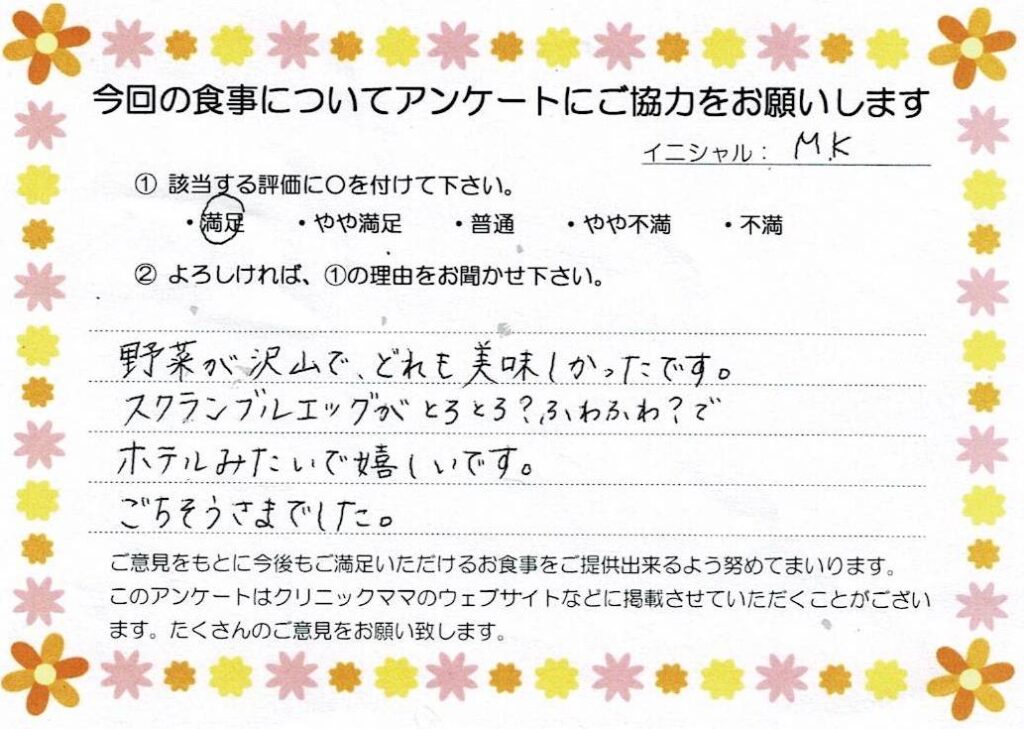 今回の食事についてアンケートにご協力をお願いします
イニシャル： M.K
① 該当する評価に〇を付けて下さい。
・満足 ・やや満足 ・普通 ・やや不満 ・不満
② よろしければ、①の理由をお聞かせ下さい。
野菜が沢山で、どれも美味しかったです。
スクランブルエッグがとろとろ？ふわふわ？で
ホテルみたいで嬉しいです。
ごちそうさまでした。
ご意見をもとに今後もご満足いただけるお食事をご提供出来るよう努めてまいります。
このアンケートはクリニックママのウェブサイトなどに掲載させていただくことがござい
ます。たくさんのご意見をお願い致します。